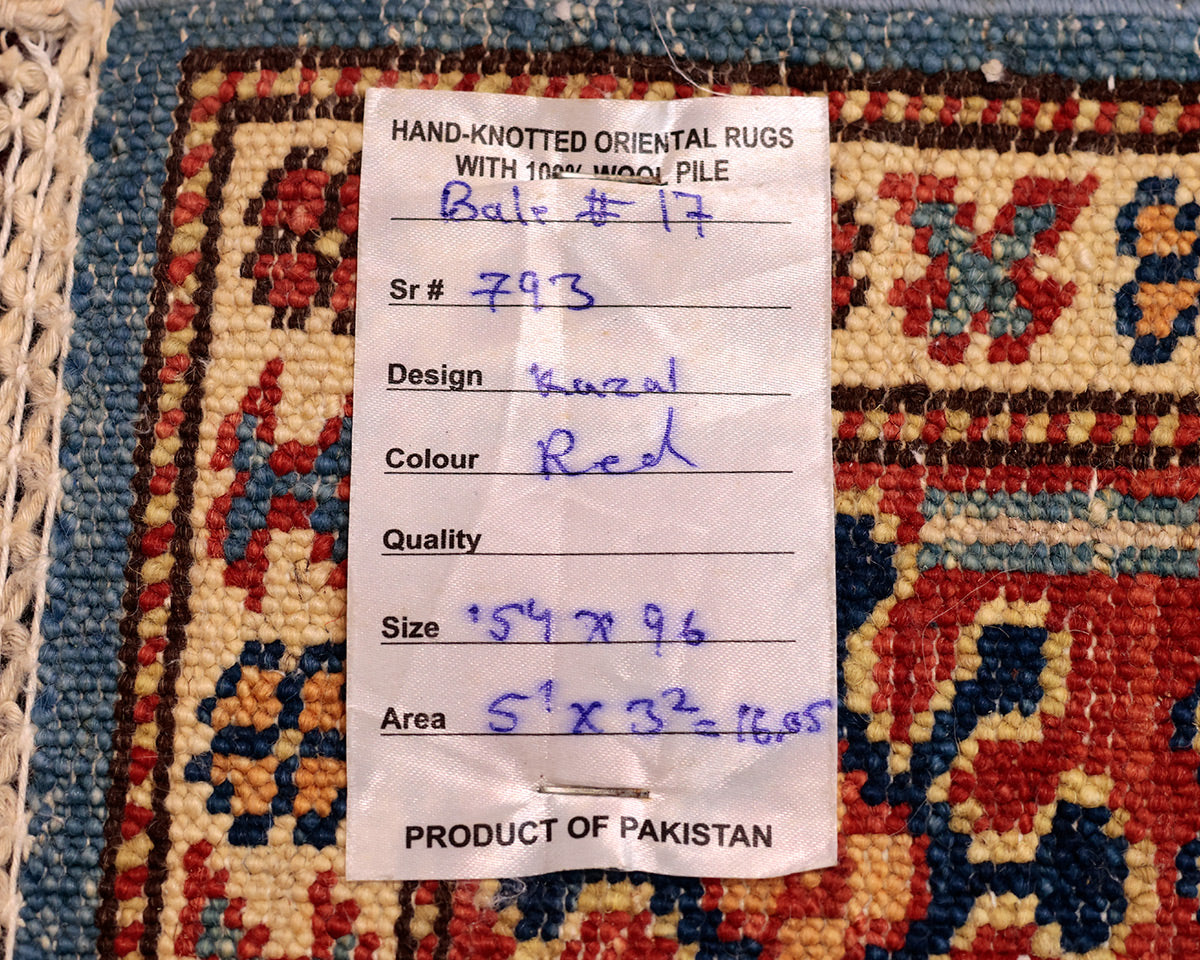 HAND-KNOTTED ORIENTAL RUGS
WITH 100% WOOL PILE
Bale # 17
Sr # 793
Design Kazal
Colour Red
Quality
Size 54 x 96
Area 5¹ x 3² = 16.05
PRODUCT OF PAKISTAN